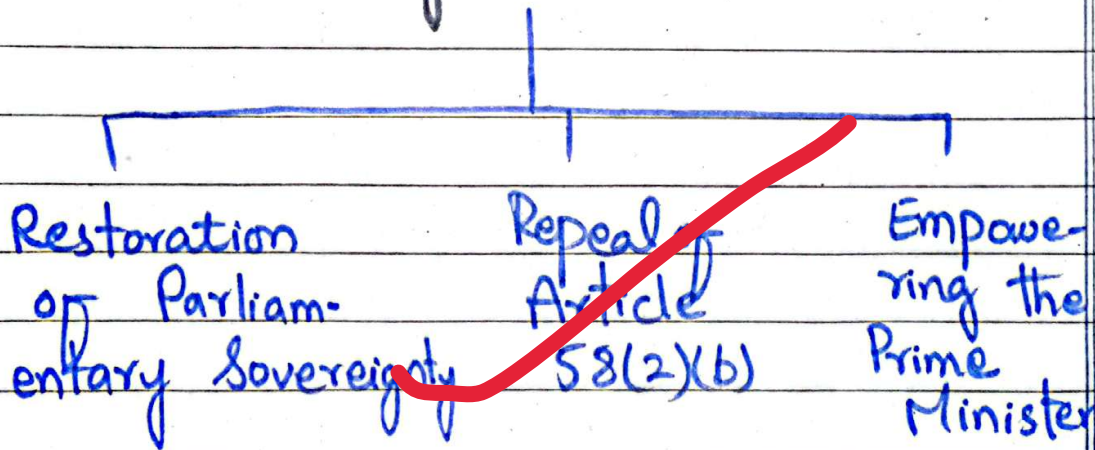 Restoration
of Parliam-
entary Sovereignty
Repeal of
Article
58(2)(b)
Empowe-
ring the
Prime
Minister